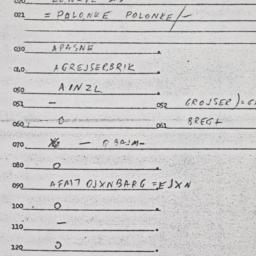 021 = POLONKE POLONKE/-
030 APASNE
040 AGREJSERBRIK
050 AINZL
051 - 052 GROJSER)=G
060 0 061 BREGL
070 - OBAJM-
080 0
090 AFMT OJXNBARG =EJXN
100 0
110 -
120 0